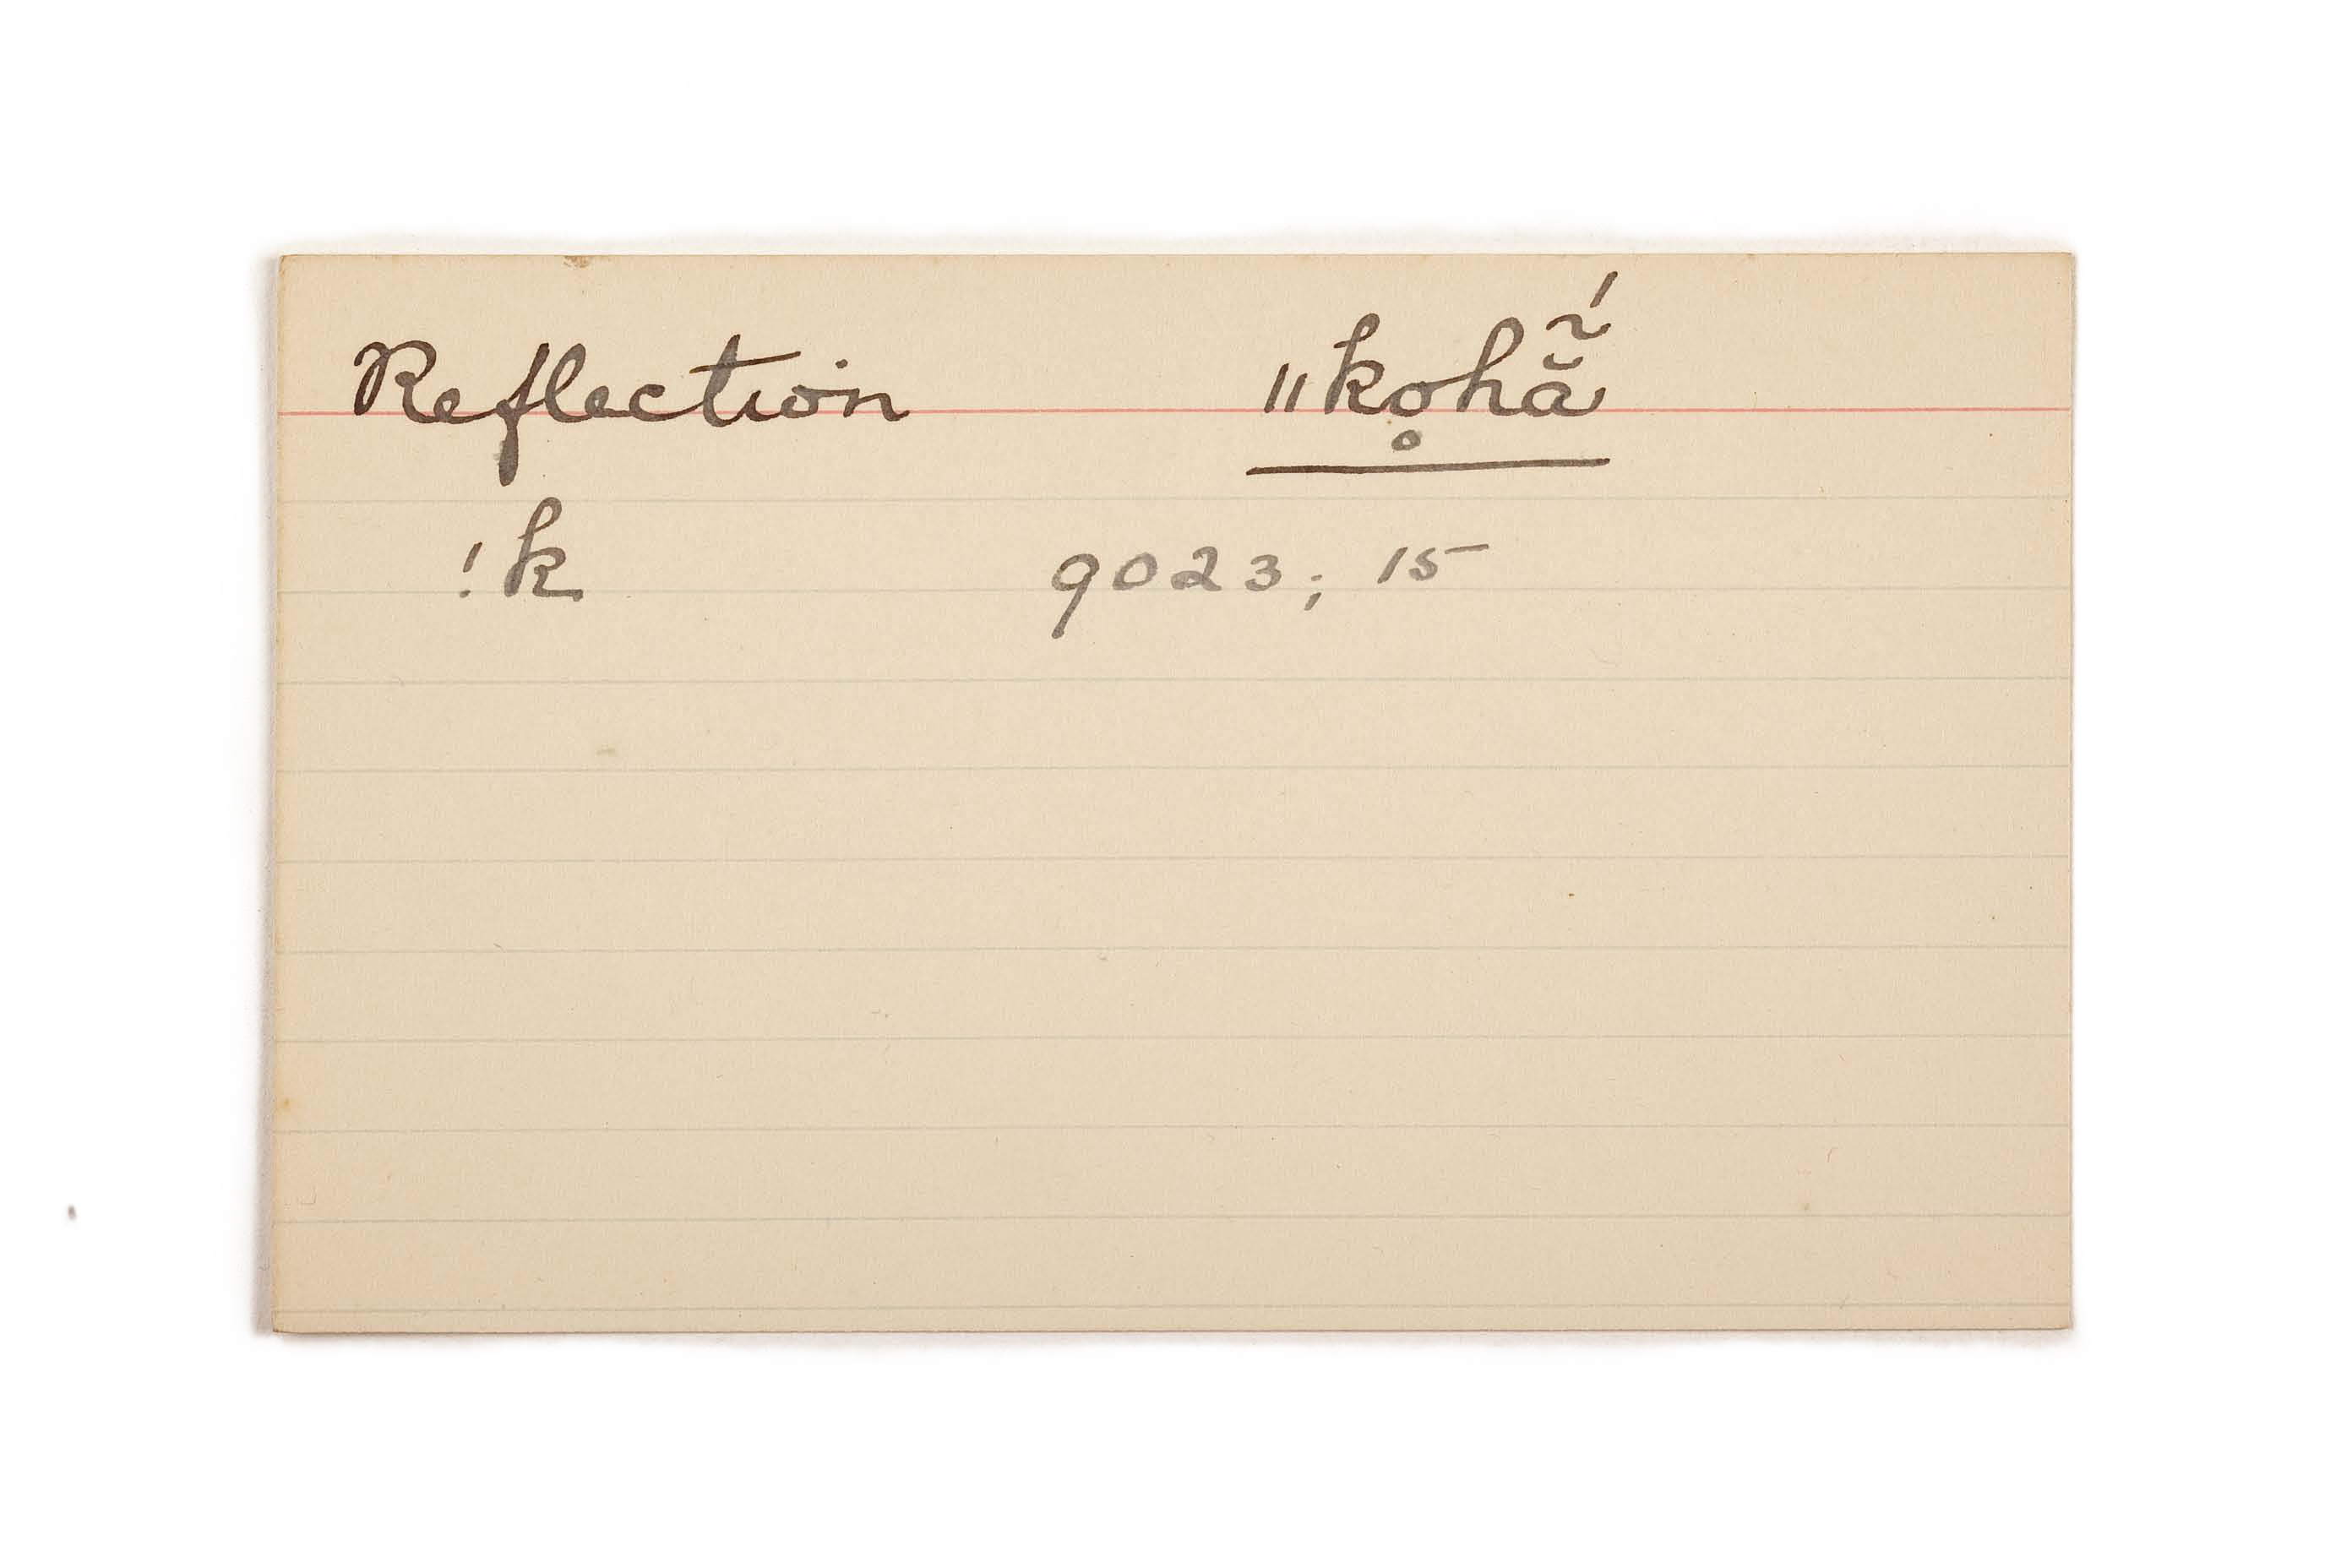 Reflection ǁko̥hã̆́
!k 9023; 15